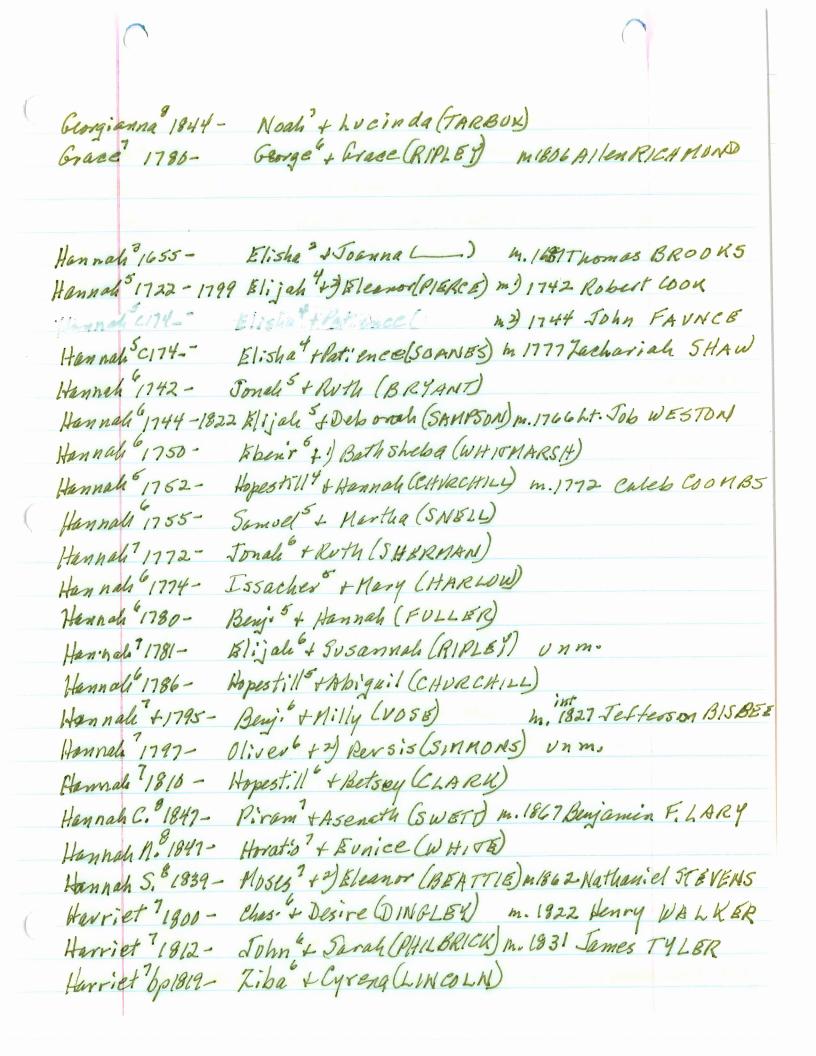 Georgianna⁸ 1844- Noah⁷ + Lucinda (TARBOX)
Grace⁷ 1780- George⁶ + Grace (RIPLEY) m1806 Allen RICHMOND
Hannah³ 1655- Elisha² + Joanna (——) m. Thomas BROOKS
Hannah⁵ 1722-1799 Elijah⁴ + 2) Eleanor (PIERCE) m1) 1742 Robert COOK
Hannah⁵ c174-- Elisha⁴ + Patience ( m2) 1744 John FAUNCE
Hannah⁵ c174-- Elisha⁴ + Patience (SOANES) m 1777 Zachariah SHAW
Hannah⁶ 1742- Jonah⁵ + Ruth (BRYANT)
Hannah⁶ 1744-1822 Elijah⁵ + Deborah (SAMPSON) m. 1766 Lt. Job WESTON
Hannah⁶ 1750- Eben'r⁵ + 1) Bathsheba (WHITMARSH)
Hannah⁵ 1752- Hopestill⁴ + Hannah (CHURCHILL) m. 1772 Caleb COOMBS
Hannah⁶ 1755- Samuel⁵ + Martha (SNELL)
Hannah⁷ 1772- Jonah⁶ + Ruth (SHERMAN)
Hannah⁶ 1774- Issacher⁵ + Mary (HARLOW)
Hannah⁶ 1780- Benj.⁵ + Hannah (FULLER)
Hannah⁷ 1781- Elijah⁶ + Susannah (RIPLEY) unm.
Hannah⁶ 1786- Hopestill⁵ + Abigail (CHURCHILL)
Hannah⁷ +1795- Benj.⁶ + Milly (VOSE) m. int 1827 Jefferson BISBEE
Hannah⁷ 1797- Oliver⁶ + 2) Persis (SIMMONS) unm.
Hannah⁷ 1810- Hopestill⁶ + Betsey (CLARK)
Hannah C.⁸ 1847- Piram⁷ + Aseneth (SWETT) m. 1867 Benjamin F. LARY
Hannah N.⁸ 1847- Horatio⁷ + Eunice (WHITE)
Hannah S.⁸ 1839- Moses⁷ + 2) Eleanor (BEATTIE) m1862 Nathaniel STEVENS
Harriet⁷ 1800- Chas.⁶ + Desire (DINGLEY) m. 1822 Henry WALKER
Harriet⁷ 1812- John⁶ + Sarah (PHILBRICK) m. 1831 James TYLER
Harriet⁷ bp1819- Ziba⁶ + Cyrena (LINCOLN)